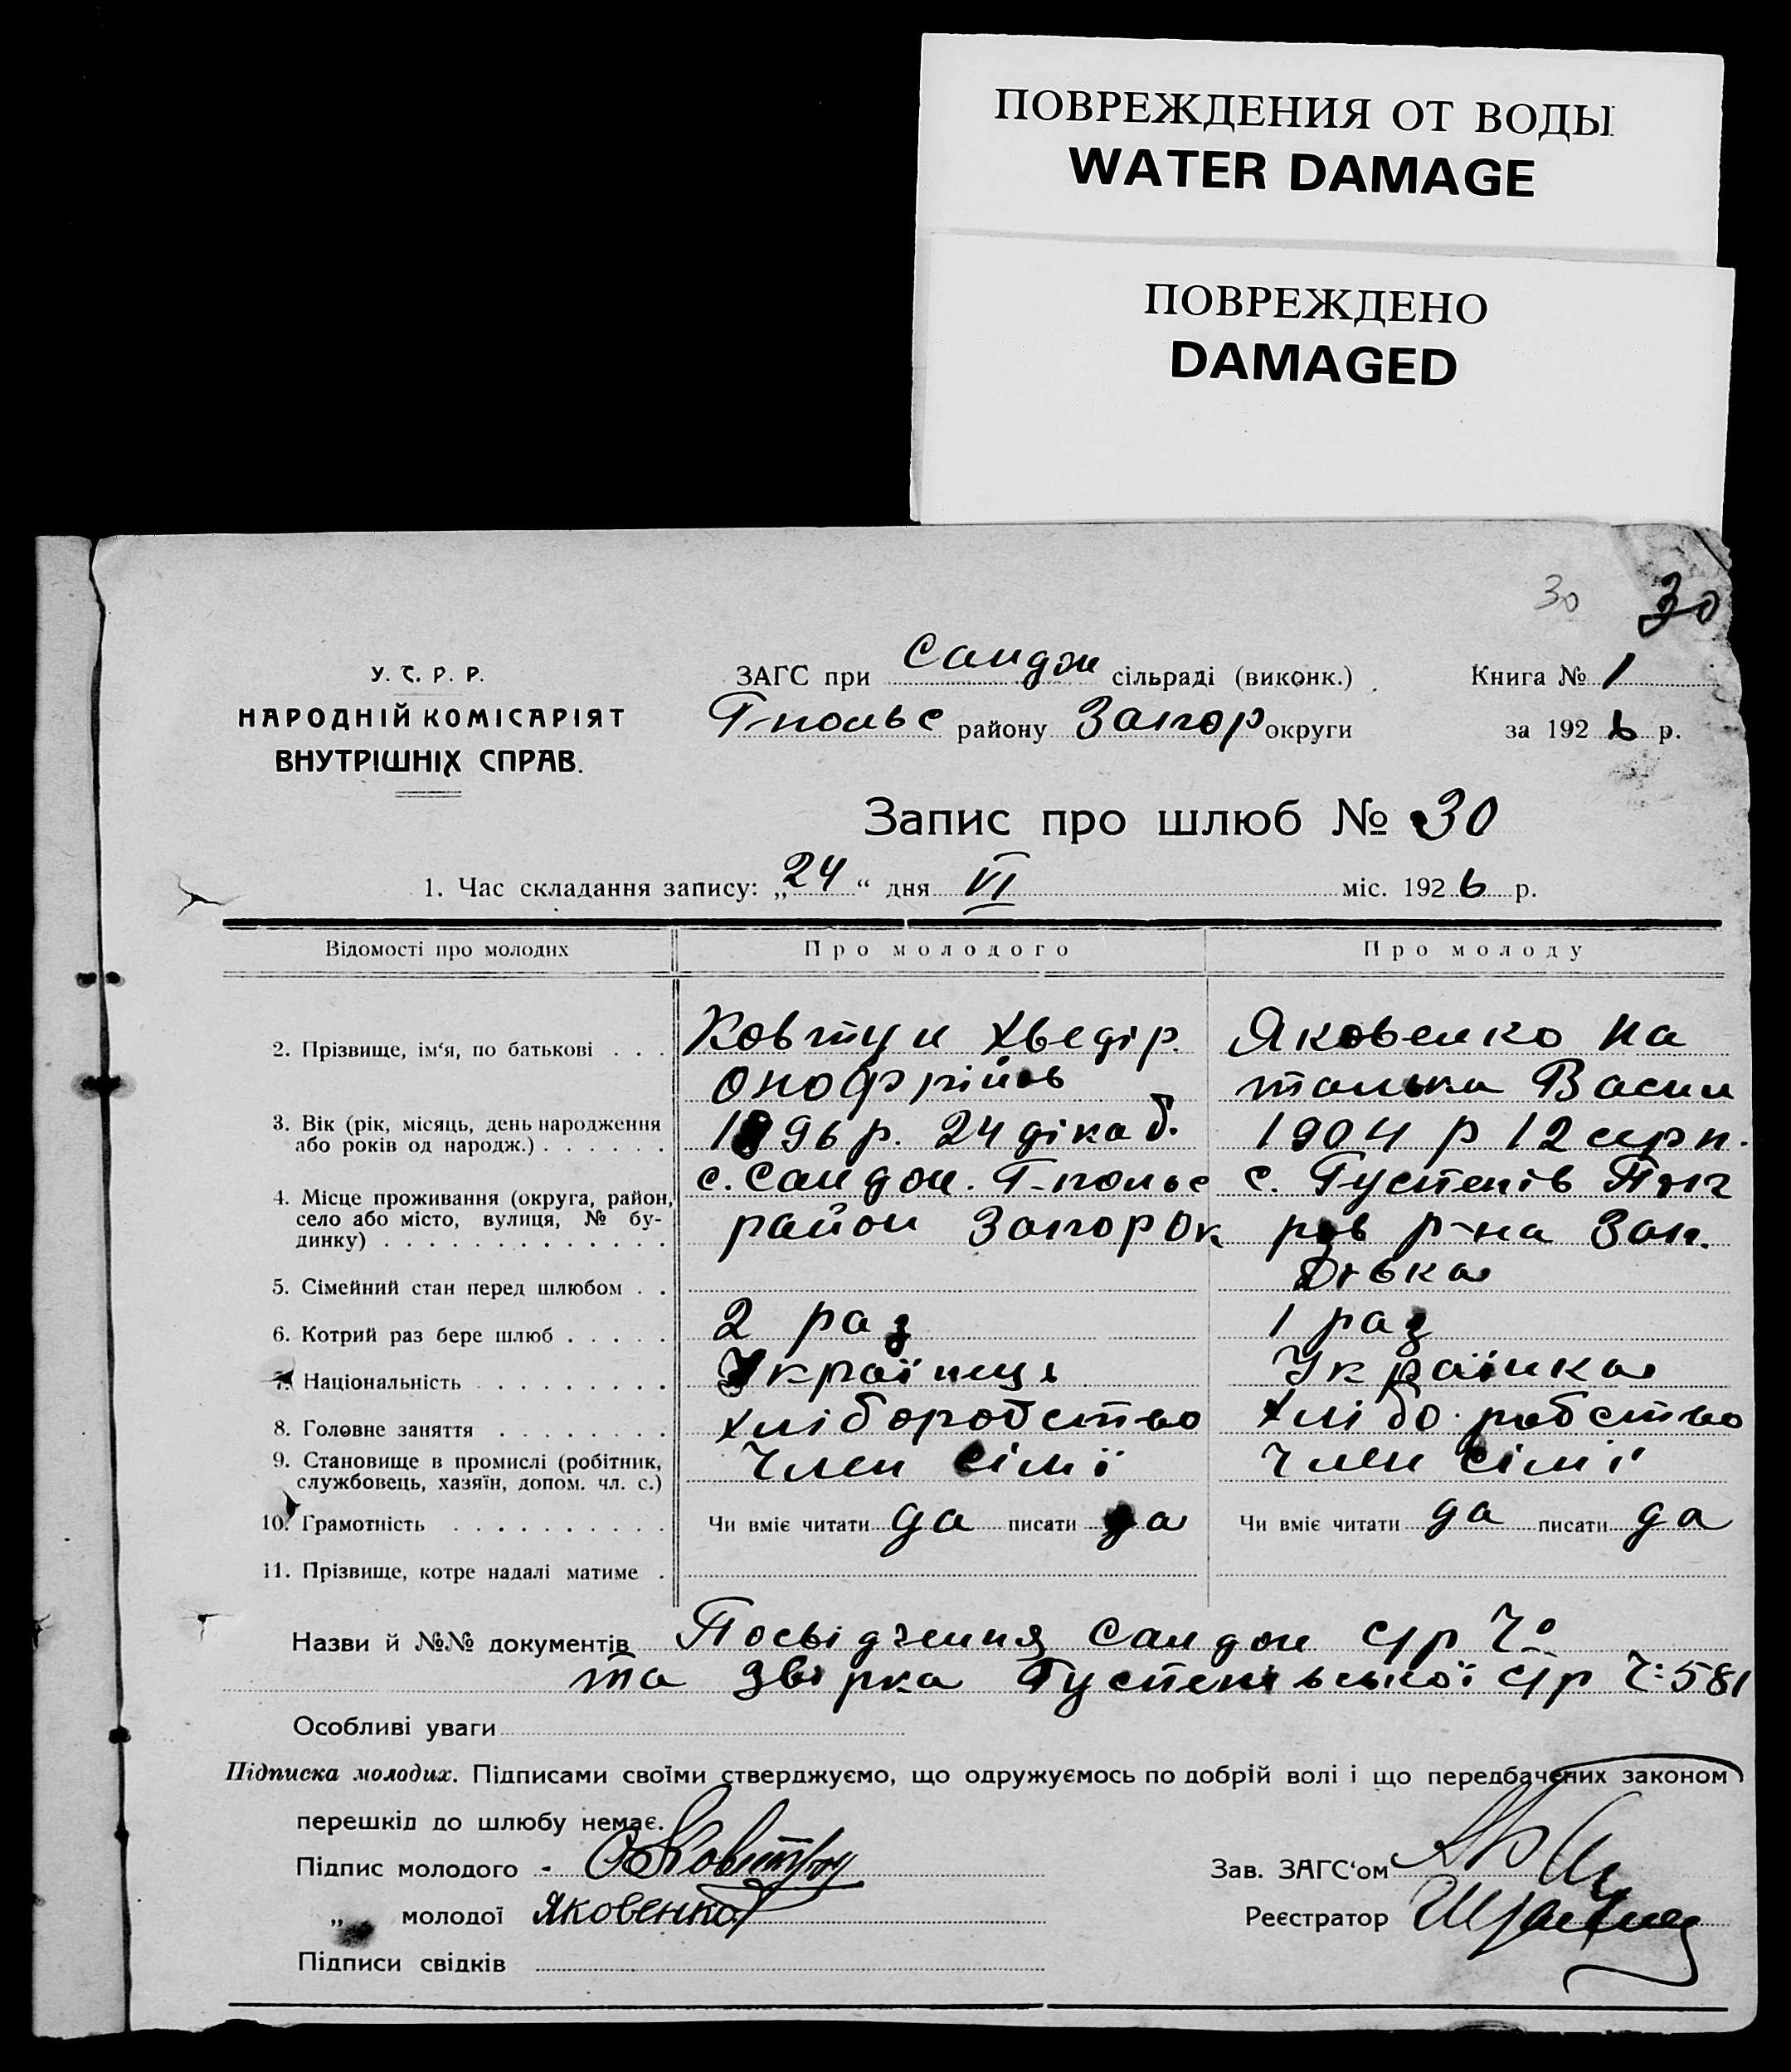 ПОВРЕЖДЕНИЯ ОТ ВОДЫ
WATER DAMAGE
ПОВРЕЖДЕНО
DAMAGED
30 30
У. С. Р. Р.
НАРОДНІЙ КОМІСАРІЯТ
ВНУТРІШНІХ СПРАВ.
ЗАГС при Сандон сільраді (виконк.)
Г-польс району Запор округи
Книга № 1
за 1926 р.
Запис про шлюб № 30
1. Час складання запису: „24“ дня VI міс. 1926 р.
Відомості про молодих Про молодого Про молоду
2. Прізвище, ім‘я, по батькові . . . Ковтун Хведір. Яковенко На
Онофрійов талка Васил
3. Вік (рік, місяць, день народження 1896 р. 24 дікаб. 1904 р 12 серп.
або років од народж.) . . . . . .
4. Місце проживання (округа, район, с. Сандон. Г-польс с. Густенів
село або місто, вулиця, № бу- район Запор Ок р-на Зап.
динку) . . . . . . . . . . . . .
5. Сімейний стан перед шлюбом . . Дівка
6. Котрий раз бере шлюб . . . . . 2 раз 1 раз
7. Національність . . . . . . . . Українць Українка
8. Головне заняття . . . . . . . . хліборобство хлібо.робство
9. Становище в промислі (робітник, Член сімї Член сімї
службовець, хазяїн, допом. чл. с.)
10. Грамотність . . . . . . . . . . Чи вміє читати да писати да Чи вміє читати да писати да
11. Прізвище, котре надалі матиме .
Назви й №№ документів Посвідчення Сандон с/р Ч°
та звірка Густенівської с/р Ч: 581
Особливі уваги
Підписка молодих. Підписами своїми стверджуємо, що одружуємось по добрій волі і що передбачених законом
перешкід до шлюбу немає.
Підпис молодого - Ковтун Зав. ЗАГС‘ом
„ молодої Яковенко Реєстратор
Підписи свідків